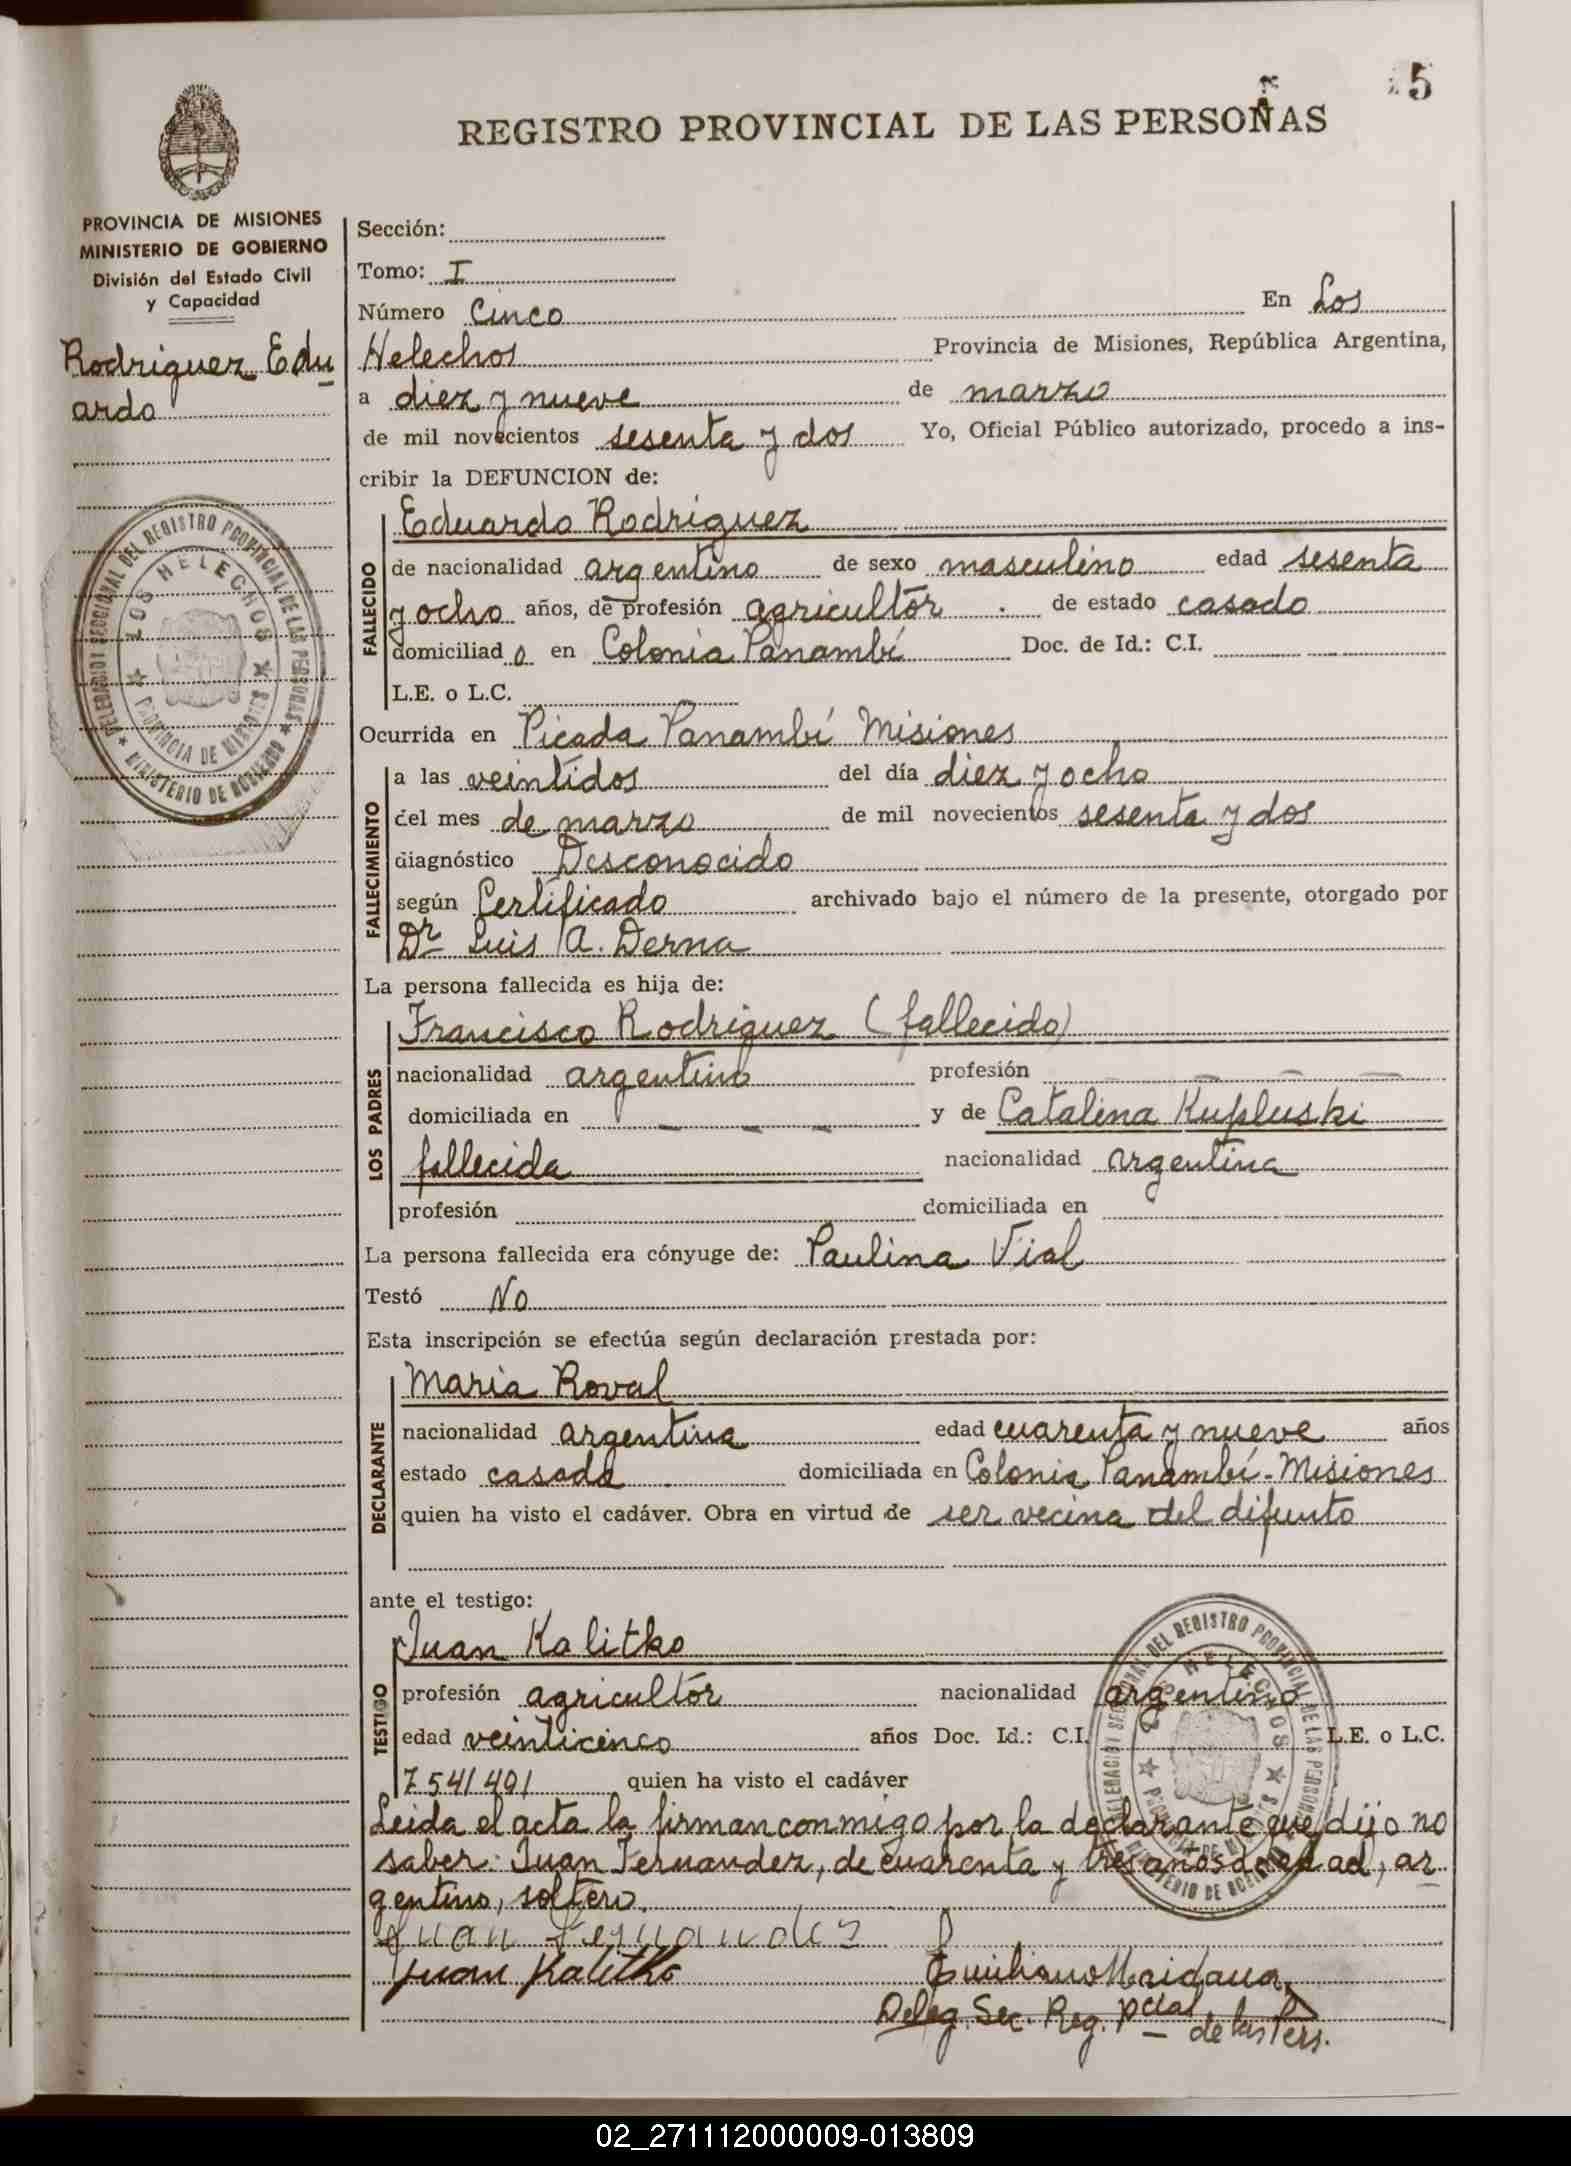 5
REGISTRO PROVINCIAL DE LAS PERSONAS
PROVINCIA DE MISIONES
MINISTERIO DE GOBIERNO
División del Estado Civil
y Capacidad
Rodriguez Edu
ardo
DELEGACION SECCIONAL DEL REGISTRO PROVINCIAL DE LAS PERSONAS
LOS HELECHOS
PROVINCIA DE MISIONES
MINISTERIO DE GOBIERNO
Sección:
Tomo: I
Número Cinco En Los
Helechos Provincia de Misiones, República Argentina,
a diez y nueve de marzo
de mil novecientos sesenta y dos Yo, Oficial Público autorizado, procedo a ins-
cribir la DEFUNCION de:
FALLECIDO
Eduardo Rodriguez
de nacionalidad argentino de sexo masculino edad sesenta
y ocho años, de profesión agricultor de estado casado
domiciliado en Colonia Panambí Doc. de Id.: C.I.
L.E. o L.C.
Ocurrida en Picada Panambí Misiones
FALLECIMIENTO
a las veintidos del día diez y ocho
del mes de marzo de mil novecientos sesenta y dos
diagnóstico Desconocido
según Certificado archivado bajo el número de la presente, otorgado por
Dr Luis A. Derna
La persona fallecida es hija de:
LOS PADRES
Francisco Rodriguez (fallecido)
nacionalidad argentino profesión — — —
domiciliada en — — — y de Catalina Kupluski
fallecida nacionalidad argentina
profesión domiciliada en
La persona fallecida era cónyuge de: Paulina Vial
Testó No
Esta inscripción se efectúa según declaración prestada por:
DECLARANTE
Maria Roval
nacionalidad argentina edad cuarenta y nueve años
estado casada domiciliada en Colonia Panambí-Misiones
quien ha visto el cadáver. Obra en virtud de ser vecina del difunto
ante el testigo:
TESTIGO
Juan Kalitko
profesión agricultor nacionalidad argentino
edad veinticinco años Doc. Id.: C.I. L.E. o L.C.
7541491 quien ha visto el cadáver
Leida el acta la firman conmigo por la declarante que dijo no
saber: Juan Fernandez, de cuarenta y tres años de edad, ar
gentino, soltero.
Juan Fernandez
Juan Kalitko Emiliano Maidana
Deleg. Sec. Reg. Pcial
de las Pers.
DELEGACION SECCIONAL DEL REGISTRO PROVINCIAL DE LAS PERSONAS
LOS HELECHOS
PROVINCIA DE MISIONES
MINISTERIO DE GOBIERNO
02_271112000009-013809